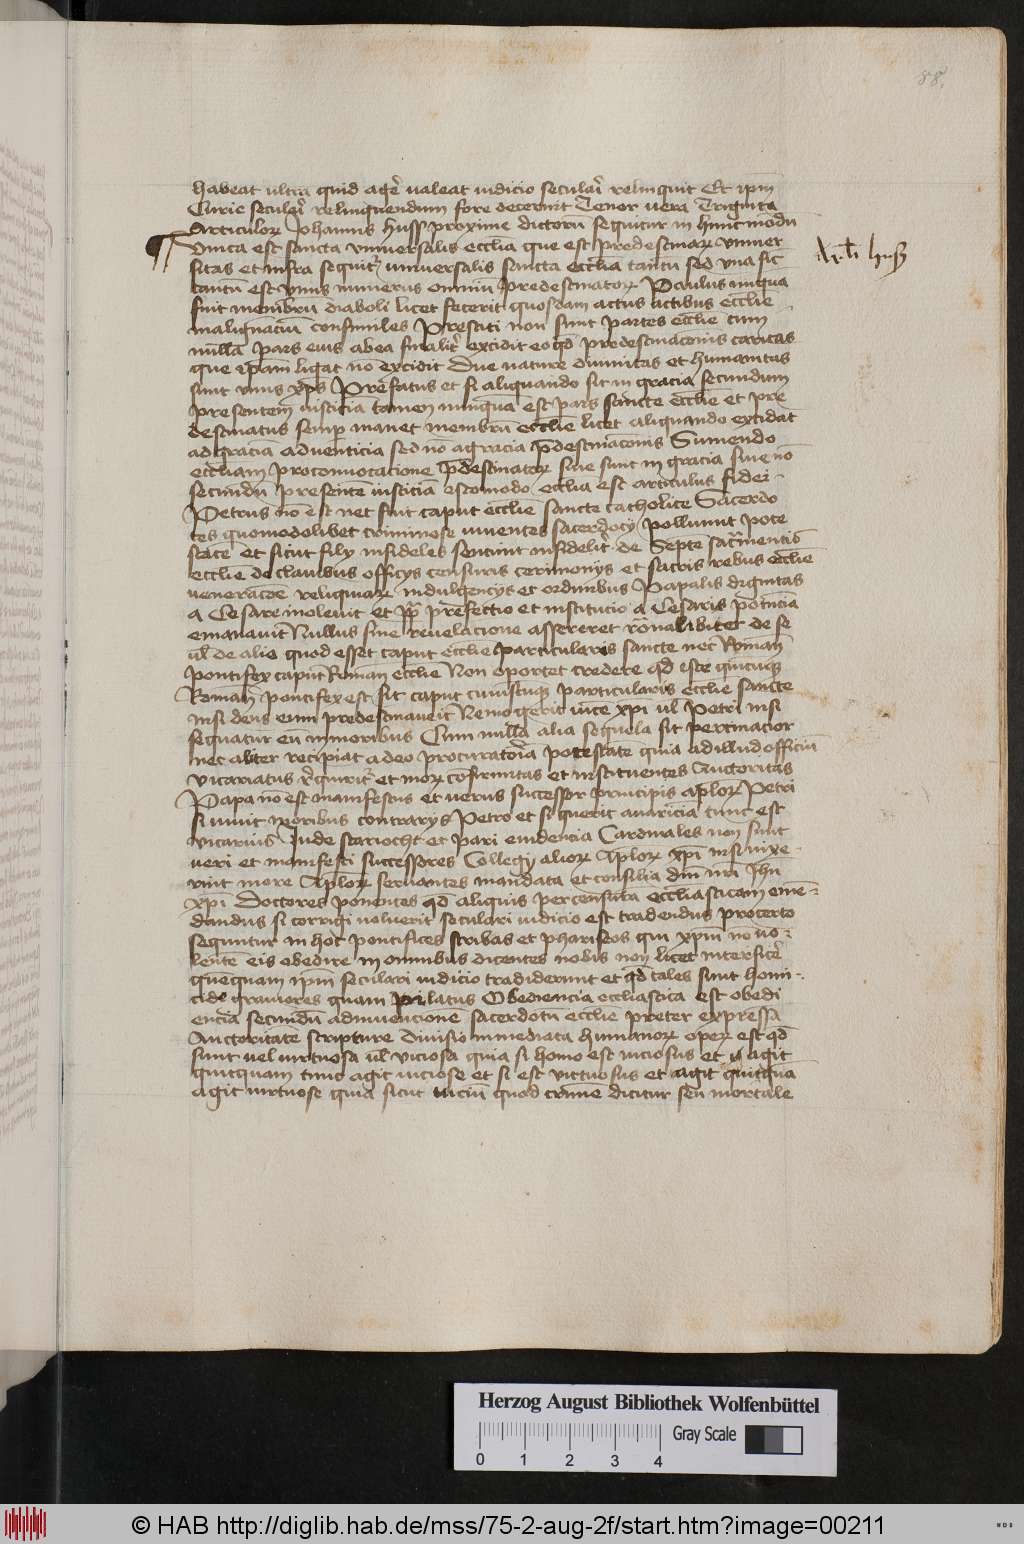 88.
habeat ultra quid agere valeat iudicio seculari relinquit Et ip̄m
Curie seculari relinquendum fore decernit Tenor vero Triginta
Articulorꝝ Johannis Huss proxime dictorū sequitur in hunc modū
Vnica est sancta vniuersalis ecclīa que est predestinatorꝝ vniuer
Artli huß
sitas et infra sequitr̄ vniuersalis sancta ecclīa tantū sed vna sic
tantū est vnus numerus omniū predestinatorꝝ Paulus nūquā
fuit membrū diaboli licet fecerit quosdam actus actibus ecclīe
malignāciū consimiles Presciti non sunt partes ecclīe cum
nulla pars eius ab ea finalitr̄ excidit eo qd̄ predestinacionis caritas
que ip̄am ligat nō excidit Due nature diuinitas et humanitas
sunt vnus xp̄s Prefatus et si aliquando sit in gracia secundum
presentem iusticiā tamen nunquā est pars sancte ecclīe et pre
destinatus semp̄ manet membrū ecclīe licet aliquando excidat
ad graciā aduenticia sed nō a gracia p̄destinacionis Sumendo
ecclīam pro conuocacione p̄destinatorꝝ siue sunt in gracia siue nō
secundū presentē iusticiā eo modo ecclīa est articulus fidei
Petrus nō est nec fuit caput ecclīe sancte catholice Sacerdo
tes quomodolibet criminose viuentes sacerdocij polluunt pote
statē et sicut filij infideles senciunt infidelitr̄ de septē sacr̄mentis
ecclīe de clauibus officijs censuris cerimonijs et sacris rebus ecclīe
veneracōe reliquiarꝝ indulgencijs et ordinibus Papalis dignitas
a Cesare inoleuit et pp̄ prefectio et institucio a Cesaris potencia
emanauit Nullus sine reuelacione assereret rōnabiliter de se
vl̄ de alio quod esset caput ecclīe particularis sancte nec Roman̄
pontifex caput Roman̄ ecclīe Non oportet credere qd̄ iste quicūqꝫ
Roman̄ pontifex est sit caput cuiuscūqꝫ particularis ecclīe sancte
nisi deus eum predestinauerit Nemo gerit vicē xp̄i vl̄ Petri nisi
sequatur eū in moribus Cum nulla alia sequela sit pertinacior
nec aliter recipiat a deo procuratoria potestate quia ad illud officiū
vicariatus r̄quiritr̄ et morꝝ conformitas et instituentes Auctoritas
Papa nō est manifestus et verus successor principis ap̄lorꝝ Petri
si viuit moribus contrarijs Petro et si querit auariciā tunc est
vicarius Jude scariocht et pari euidencia Cardinales non sunt
veri et manifesti successores Collegij aliorꝝ Ap̄lorꝝ xp̄i nisi vixe
rint more Ap̄lorꝝ seruantes mandata et consilia dn̄i nr̄i Jhū
xp̄i Doctores ponentes qd̄ aliquis per censurā ecclīasticam emē
dandus si corrigi noluerit seculari iudicio est tradendus pro certo
sequuntur in hoc pontifices scribas et phariseos qui xp̄m nō vo
lentē eis obedire in omnibus dicentes nobis non licet interficere
quēquam ip̄m seculari iudicio tradiderunt et qd̄ tales sunt homi
cide grauiores quam pilatus Obediencia ecclīastica est obedi
encia secundū adinuencione sacerdotū ecclīe preter expressā
Auctoritatē scripture Diuisio immediata humanorꝝ operꝝ est qd̄
sunt vel virtuosa vl̄ viciosa quia si homo est viciosus et agit
quitquam tunc agit viciose et si est virtuosus et agit quitquā
agit virtuose quia sicut viciū quod crimē dicitur seu mortale
Herzog August Bibliothek Wolfenbüttel
Gray Scale
0 1 2 3 4
© HAB http://diglib.hab.de/mss/75-2-aug-2f/start.htm?image=00211